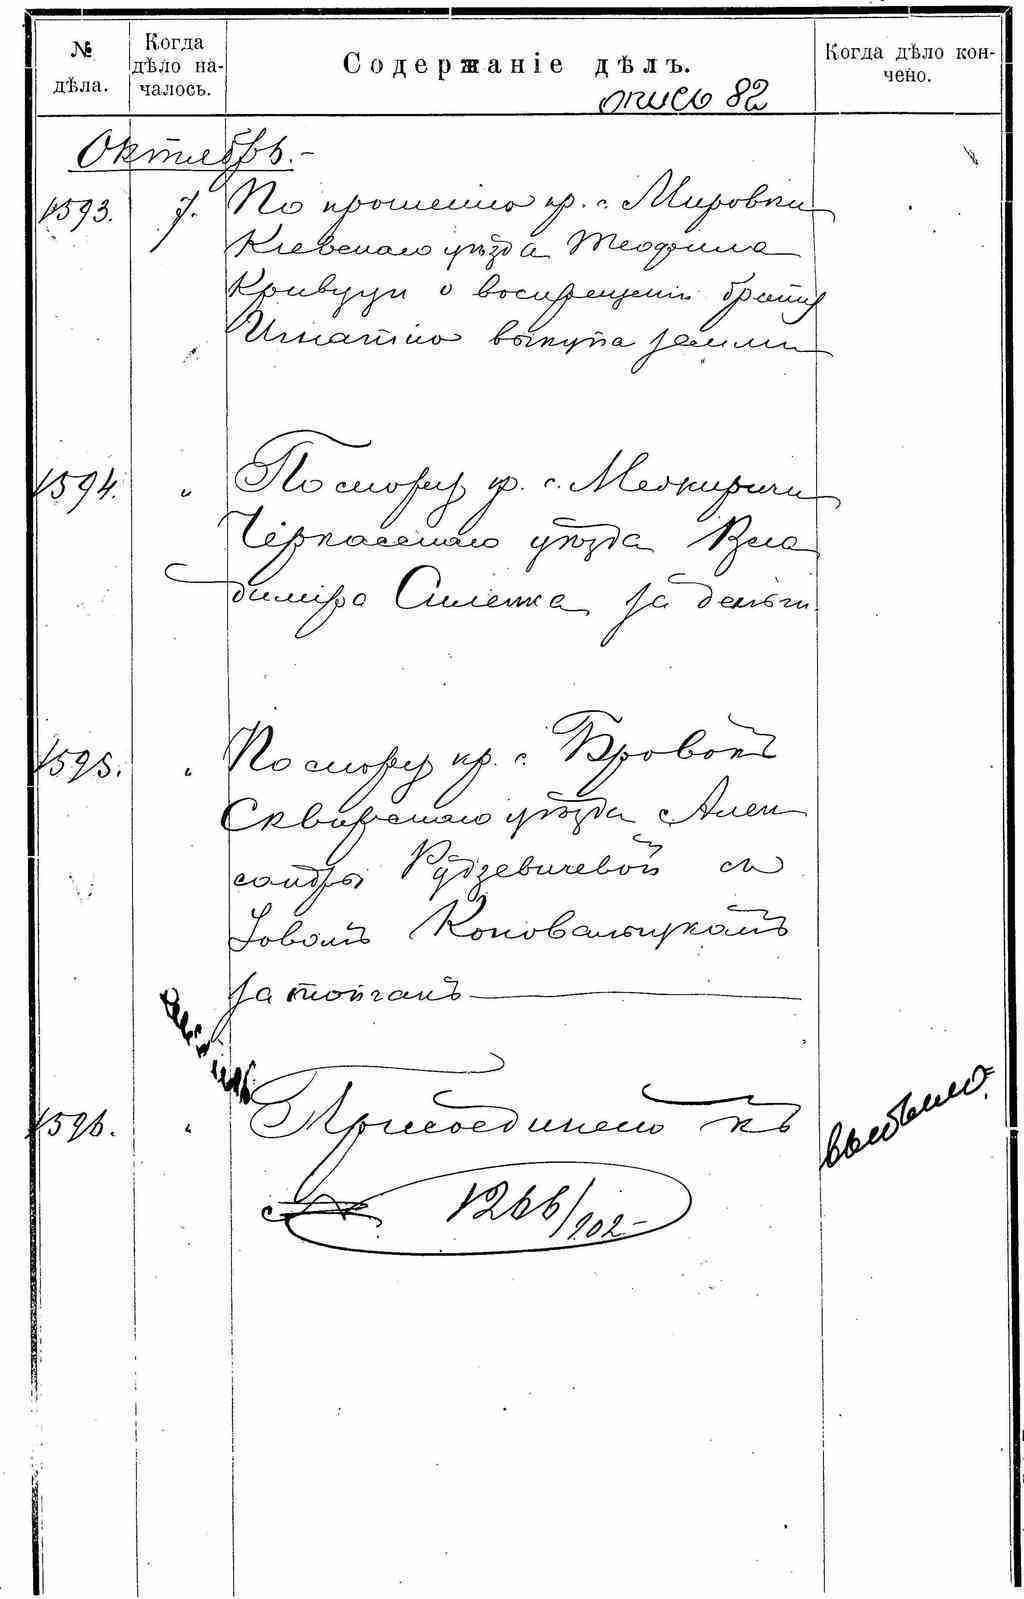 №
дѣла.
Когда
дѣло на-
чалось.
Содержаніе дѣлъ.
Когда дѣло кон-
чено.
опись 82
Октябрь.-
1593. 7. По прошенію кр. с. Мировки
Кіевскаго уѣзда Теофила
о воспрещеніи брату
Игнатію выкупа земли
1594. " По спору кр. с. Межиричи
Черкасскаго уѣзда Вла
диміра за деньги.
1595. " По спору кр. с. Бровокъ
Сквирскаго уѣзда Алек
сандры Рудзевичевой съ
Іовомъ Коновальцкомъ
за
1596. " Присоединено къ
№ 1266/902-
выбыло.